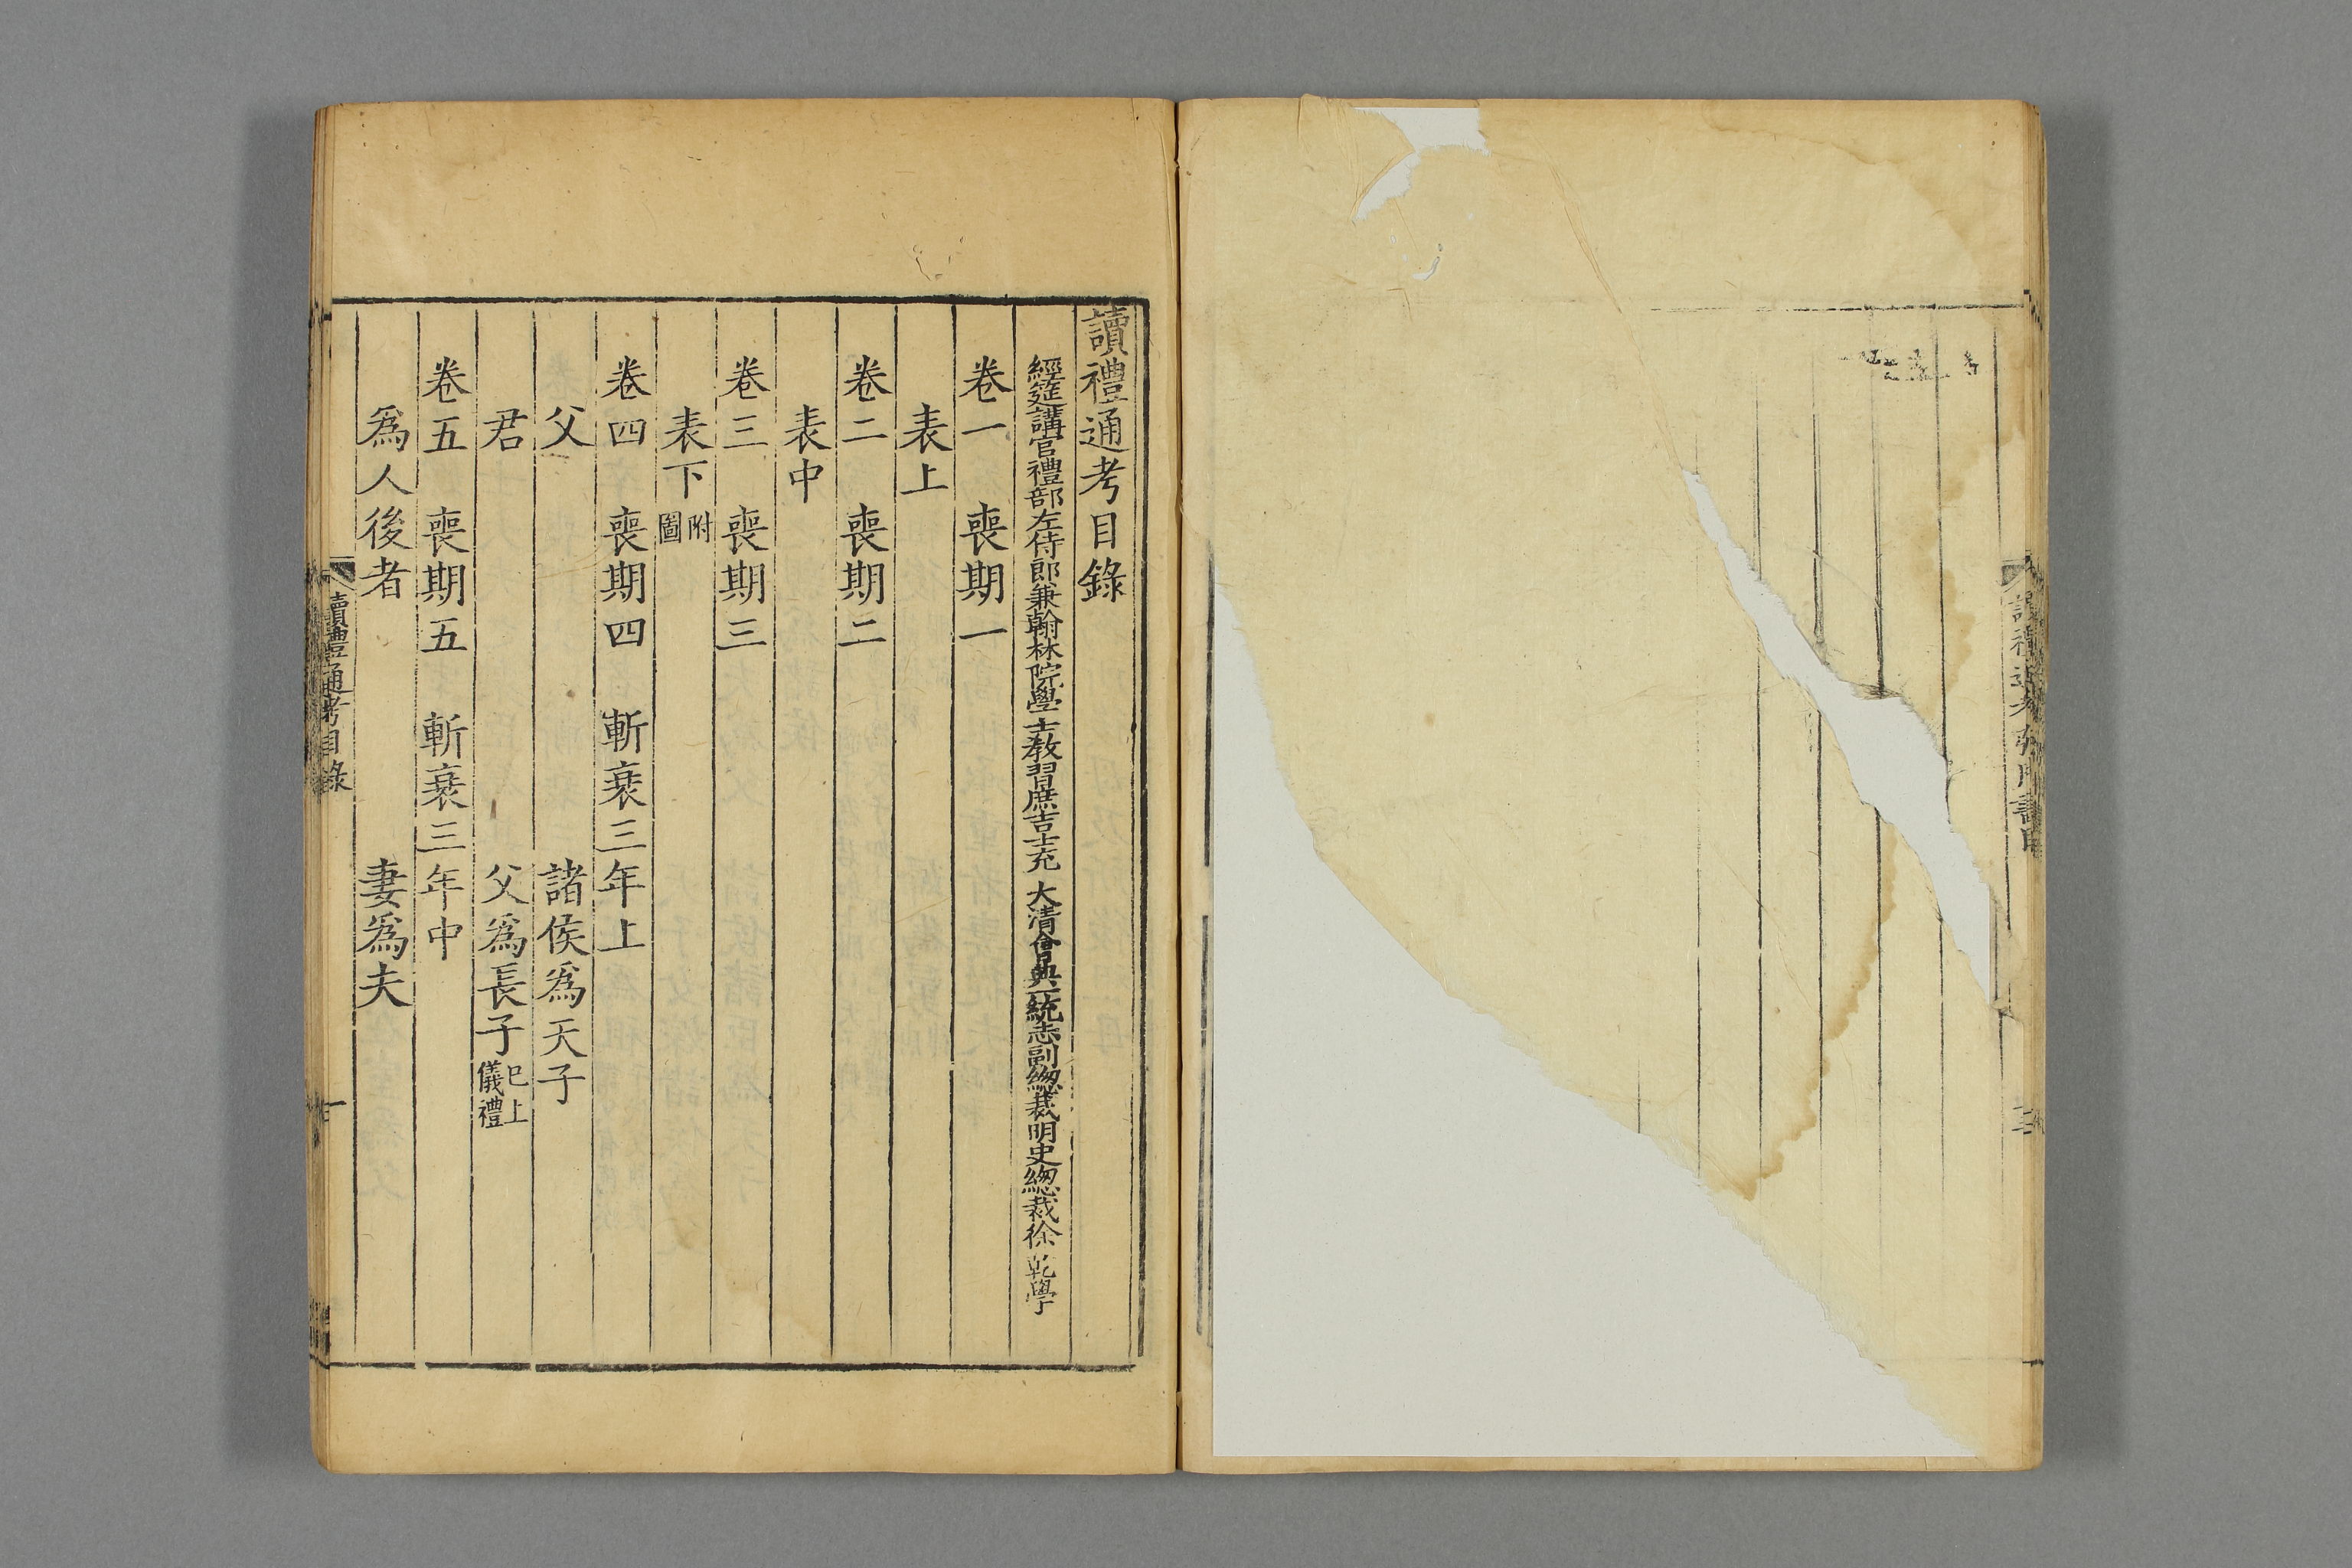 讀禮通考目錄
經筵講官禮部左侍郎兼翰林院學士教習庶吉士充 大清會典一統志副緫裁明史緫裁徐乾學
卷一 喪期一
表上
卷二 喪期二
表中
卷三 喪期三
表下 附圖
卷四 喪期四 斬衰三年上
父 諸侯爲天子
君 父爲長子 已上儀禮
卷五 喪期五 斬衰三年中
爲人後者 妻爲夫
讀禮通考目錄 一